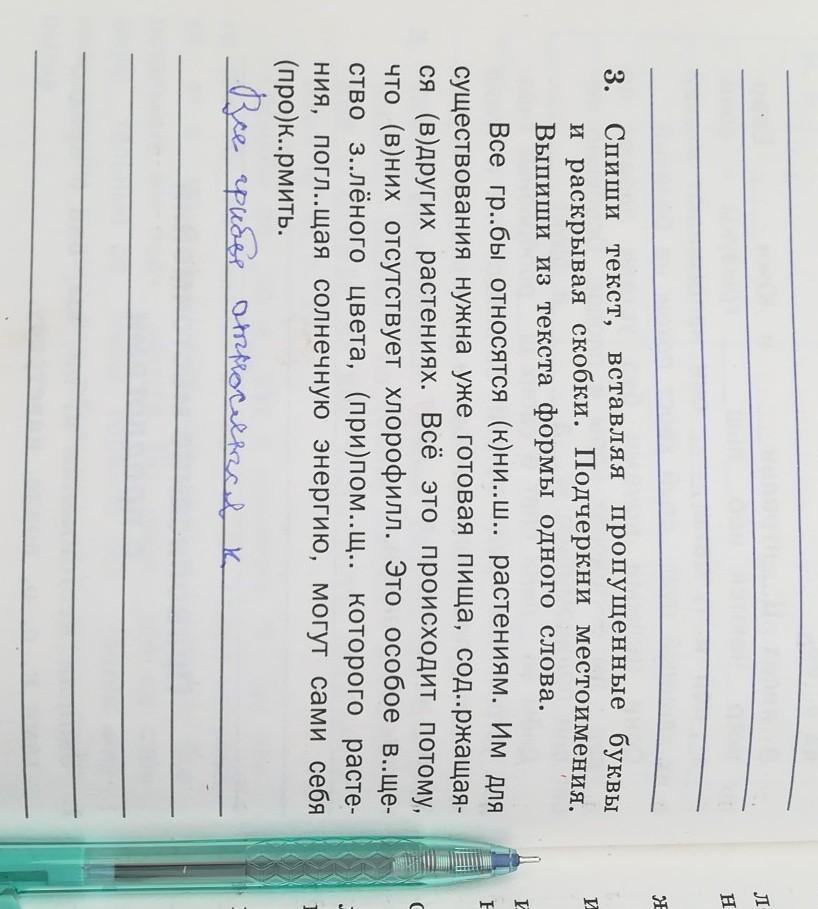 3. Спиши текст, вставляя пропущенные буквы
и раскрывая скобки. Подчеркни местоимения.
Выпиши из текста формы одного слова.
Все гр..бы относятся (к)ни..ш.. растениям. Им для
существования нужна уже готовая пища, сод..ржащая-
ся (в)других растениях. Всё это происходит потому,
что (в)них отсутствует хлорофилл. Это особое в..ще-
ство з..лёного цвета, (при)пом..щ.. которого расте-
ния, погл..щая солнечную энергию, могут сами себя
(про)к..рмить.
Все грибы относятся к